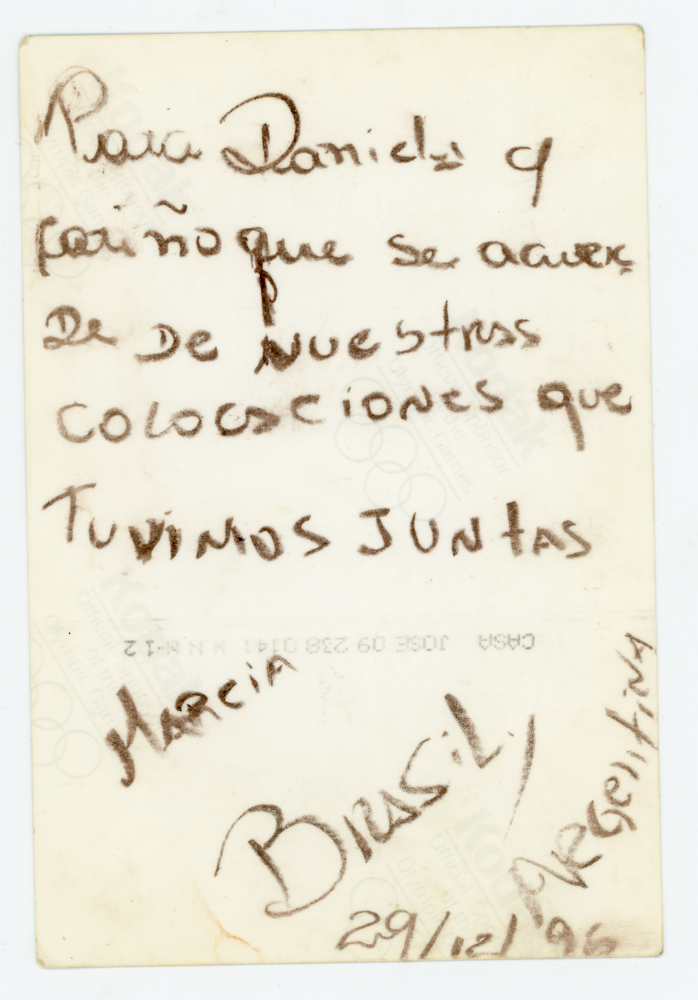 Para Daniela y
cariño que se acuer
De De NUEStras
COLOCACiONES que
TUVIMOS JUNtAS
CASA JOSE 09 238 0141 N N N-12
MARCiA
BRASiL/
ARGentiNA
29/12/96
Kodak
Official Sponsor
of the
Olympic Games